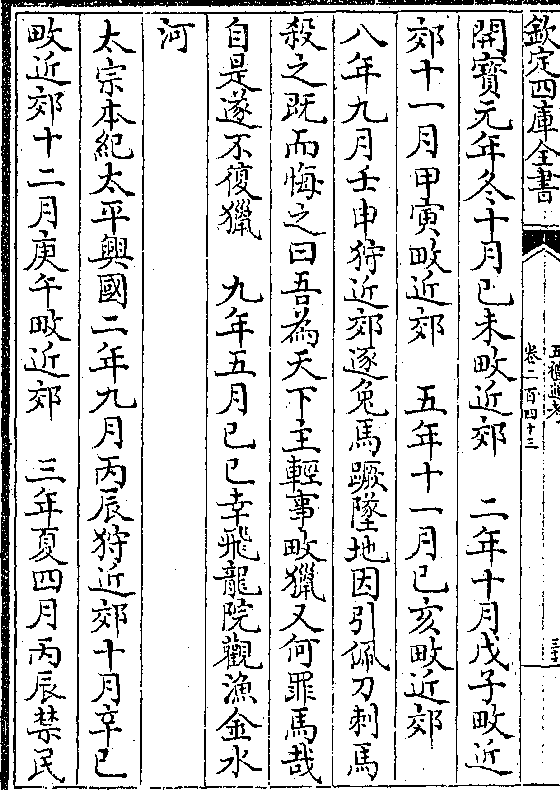 欽定四庫全書
五禮通考
卷二百四十三
開寶元年冬十月已未畋近郊　二年十月戊子畋近
郊十一月甲寅畋近郊　五年十一月已亥畋近郊
八年九月壬申狩近郊逐兔馬蹶墜地因引佩刀刺馬
殺之既而悔之曰吾為天下主輕事畋獵又何罪馬哉
自是遂不復獵　九年五月已巳幸飛龍院觀漁金水
河
太宗本紀太平興國二年九月丙辰狩近郊十月辛巳
畋近郊十二月庚午畋近郊　三年夏四月丙辰禁民